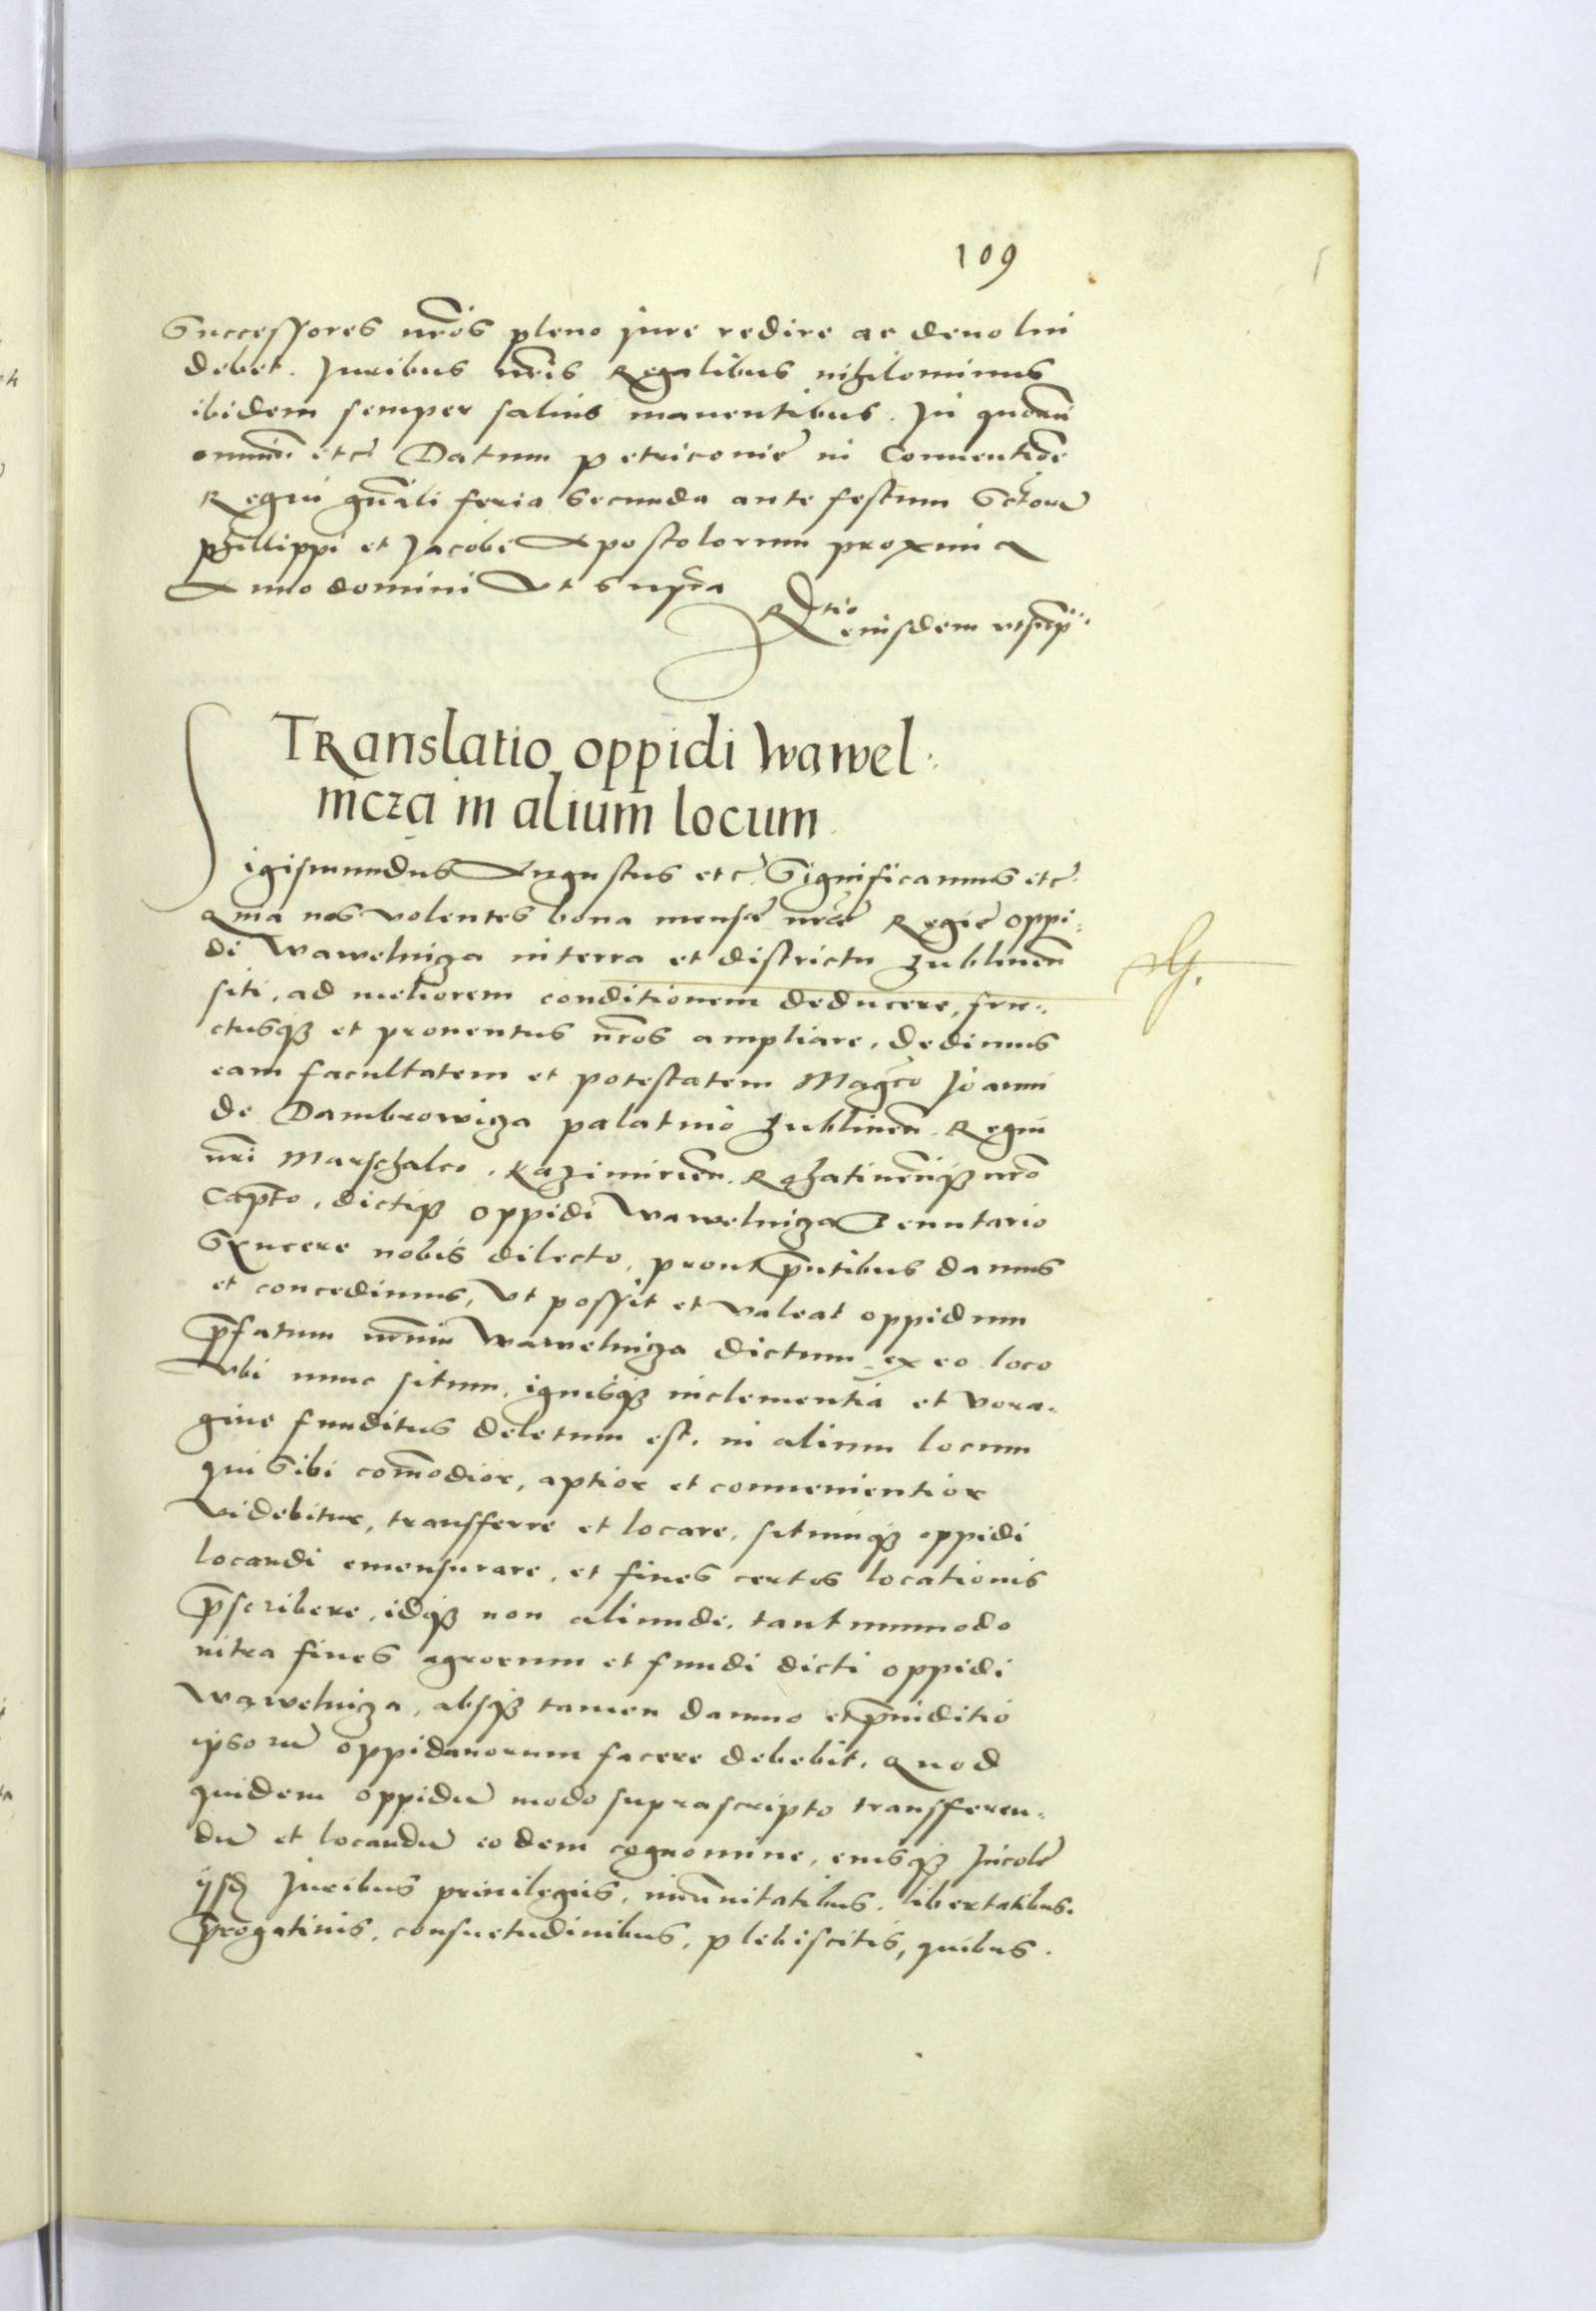 109
Successores nr̃os pleno jure redire ac deuolui
debet. Juribus nr̃is Regalibus nihilominus
ibidem semper saluis manentibus. In quorũ
omniũ etc̃ Datum petricouię in Conuentiõe
Regni gñali feria secunda ante festum Sctorũ
phillippi et Jacobi Apostolorum proxima
Anno domini Vt supra
Rꝉtio
eiusdem vt sup̃
TRanslatio oppidi Wawel:
nicza in alium locum
Sigismundus Augustus etc̃. Significamus etc̃.
Quia nos volentes bona mensę nr̃ę Regię oppi:
di Wawelnicza in terra et districtu Lublineñ
siti, ad meliorem conditionem deducere, fru:
ctusqꝫ et prouentus nr̃os ampliare, dedimus
eam facultatem et potestatem Mag̃co Joanni
de Dambrowicza palatino Lublineñ. Regni
nr̃i Marschalco, Kazimirieñ. Rohatineñqꝫ nr̃o
Capt̃o, dictiqꝫ oppidi Wawelnicza Tenutario
Syncere nobis dilecto, prout p̃ntibus damus
et concedimus, Vt possit et valeat oppidum
p̃fatum nr̃um Wawelnicza dictum, ex eo loco
Vbi nunc situm, ignisqꝫ inclementia et vora:
gine funditus deletum est, in alium locum
qui Sibi com̃odior, aptior et conuenientior
videbitur, transferre et locare, situmqꝫ oppidi
locandi emensurare, et fines certos locationis
p̃scribere, idqꝫ non aliunde, tantummodo
intra fines agrorum et fundi dicti oppidi
Wawelnicza, absqꝫ tamen damno et p̃iuditio
ipsorũ oppidanorum facere debebit. Quod
quidem oppidũ modo suprascripto transferen:
dũ et locandũ eodem cognomine, eiusqꝫ Incolę
ijsd̃ Juribus priuilegiis, im̃unitatibus, libertatibus.
p̃rogatiuis, consuetudinibus, plebiscitis, quibus.